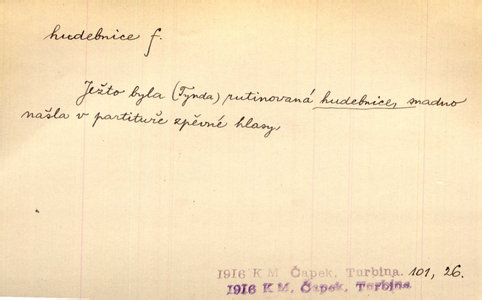 hudebnice f.
Ježto byla (Tynda) rutinovaná hudebnice, snadno
našla v partituře zpěvné hlasy
1916 K M Čapek, Turbina. 101, 26.
1916 K M. Čapek, Turbina